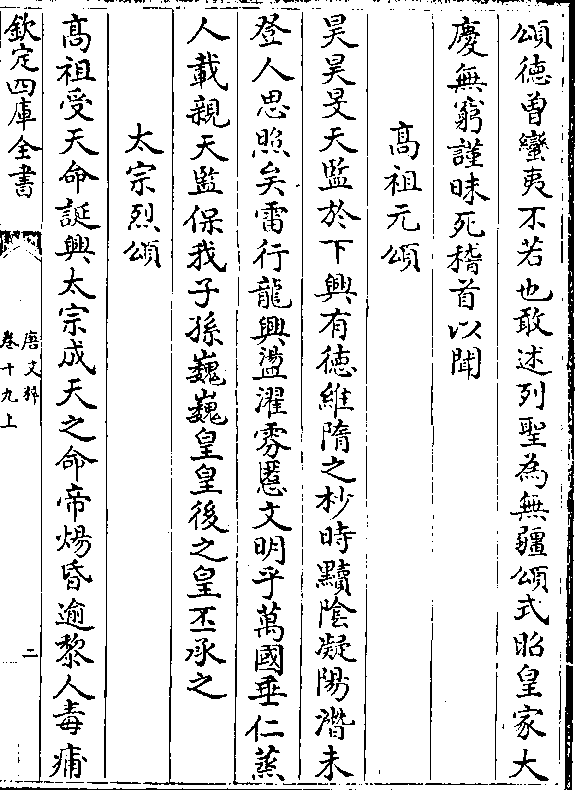 頌徳曽蠻夷不若也敢述列聖為無疆頌式昭皇家大
慶無窮謹昧死稽首以聞
髙祖元頌
昊昊旻天監於下興有徳維隋之杪時黷陰凝陽濳未
登人思照矣雷行龍興盪濯雰慝文明乎萬國垂仁蒸
人載親天監保我子孫巍巍皇皇後之皇丕承之
太宗烈頌
髙祖受天命誕興太宗成天之命帝煬昏逾黎人毒痡
欽定四庫全書
唐文粹
卷十九上
二